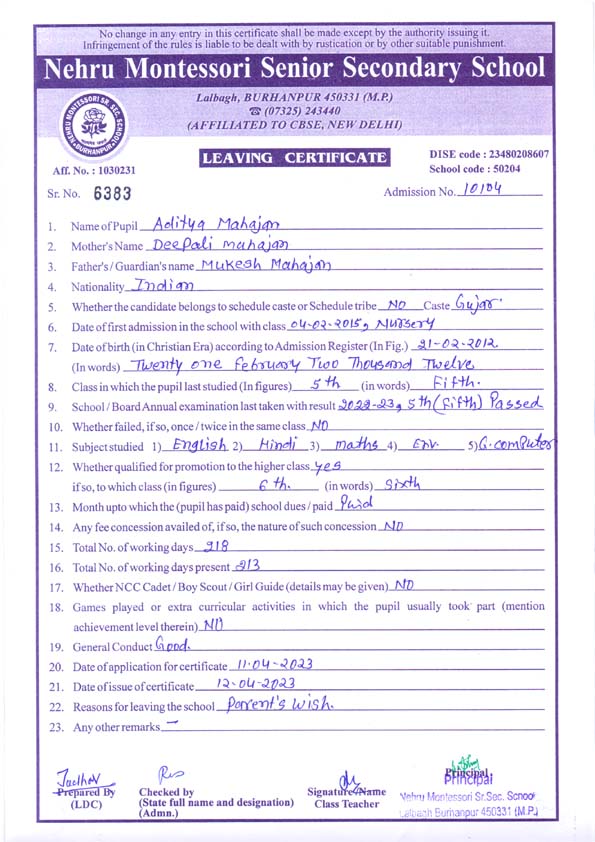 No change in any entry in this certificate shall be made except by the authority issuing it.
Infringement of the rules is liable to be dealt with by rustication or by other suitable punishment.
Nehru Montessori Senior Secondary School
Lalbagh, BURHANPUR 450331 (M.P.)
☎ (07325) 243440
(AFFILIATED TO CBSE, NEW DELHI)
NEHRU MONTESSORI SR. SEC. SCHOOL
BURHANPUR
LEAVING CERTIFICATE
DISE code : 23480208607
Aff. No. : 1030231
School code : 50204
Sr. No. 6383
Admission No. 10104
1. Name of Pupil Aditya Mahajan
2. Mother's Name Deepali mahajan
3. Father's / Guardian's name Mukesh Mahajan
4. Nationality Indian
5. Whether the candidate belongs to schedule caste or Schedule tribe NO Caste Gujar
6. Date of first admission in the school with class 04-02-2015, Nursery
7. Date of birth (in Christian Era) according to Admission Register (In Fig.) 21-02-2012
(In words) Twenty one february Two Thousand Twelve
8. Class in which the pupil last studied (In figures) 5th (in words) Fifth.
9. School / Board Annual examination last taken with result 2022-23, 5th (Fifth) Passed
10. Whether failed, if so, once / twice in the same class NO
11. Subject studied 1) English 2) Hindi 3) maths 4) Env. 5) G.computer
12. Whether qualified for promotion to the higher class yes
if so, to which class (in figures) 6th. (in words) Sixth
13. Month upto which the (pupil has paid) school dues / paid Paid
14. Any fee concession availed of, if so, the nature of such concession NO
15. Total No. of working days 218
16. Total No. of working days present 213
17. Whether NCC Cadet / Boy Scout / Girl Guide (details may be given) NO
18. Games played or extra curricular activities in which the pupil usually took part (mention
achievement level therein) NO
19. General Conduct Good.
20. Date of application for certificate 11-04-2023
21. Date of issue of certificate 12-04-2023
22. Reasons for leaving the school Parent's Wish.
23. Any other remarks —
Prepared By
(LDC)
Checked by
(State full name and designation)
(Admn.)
Signature/Name
Class Teacher
Principal
Principal
Nehru Montessori Sr.Sec. School
Lalbagh Burhanpur 450331 (M.P.)